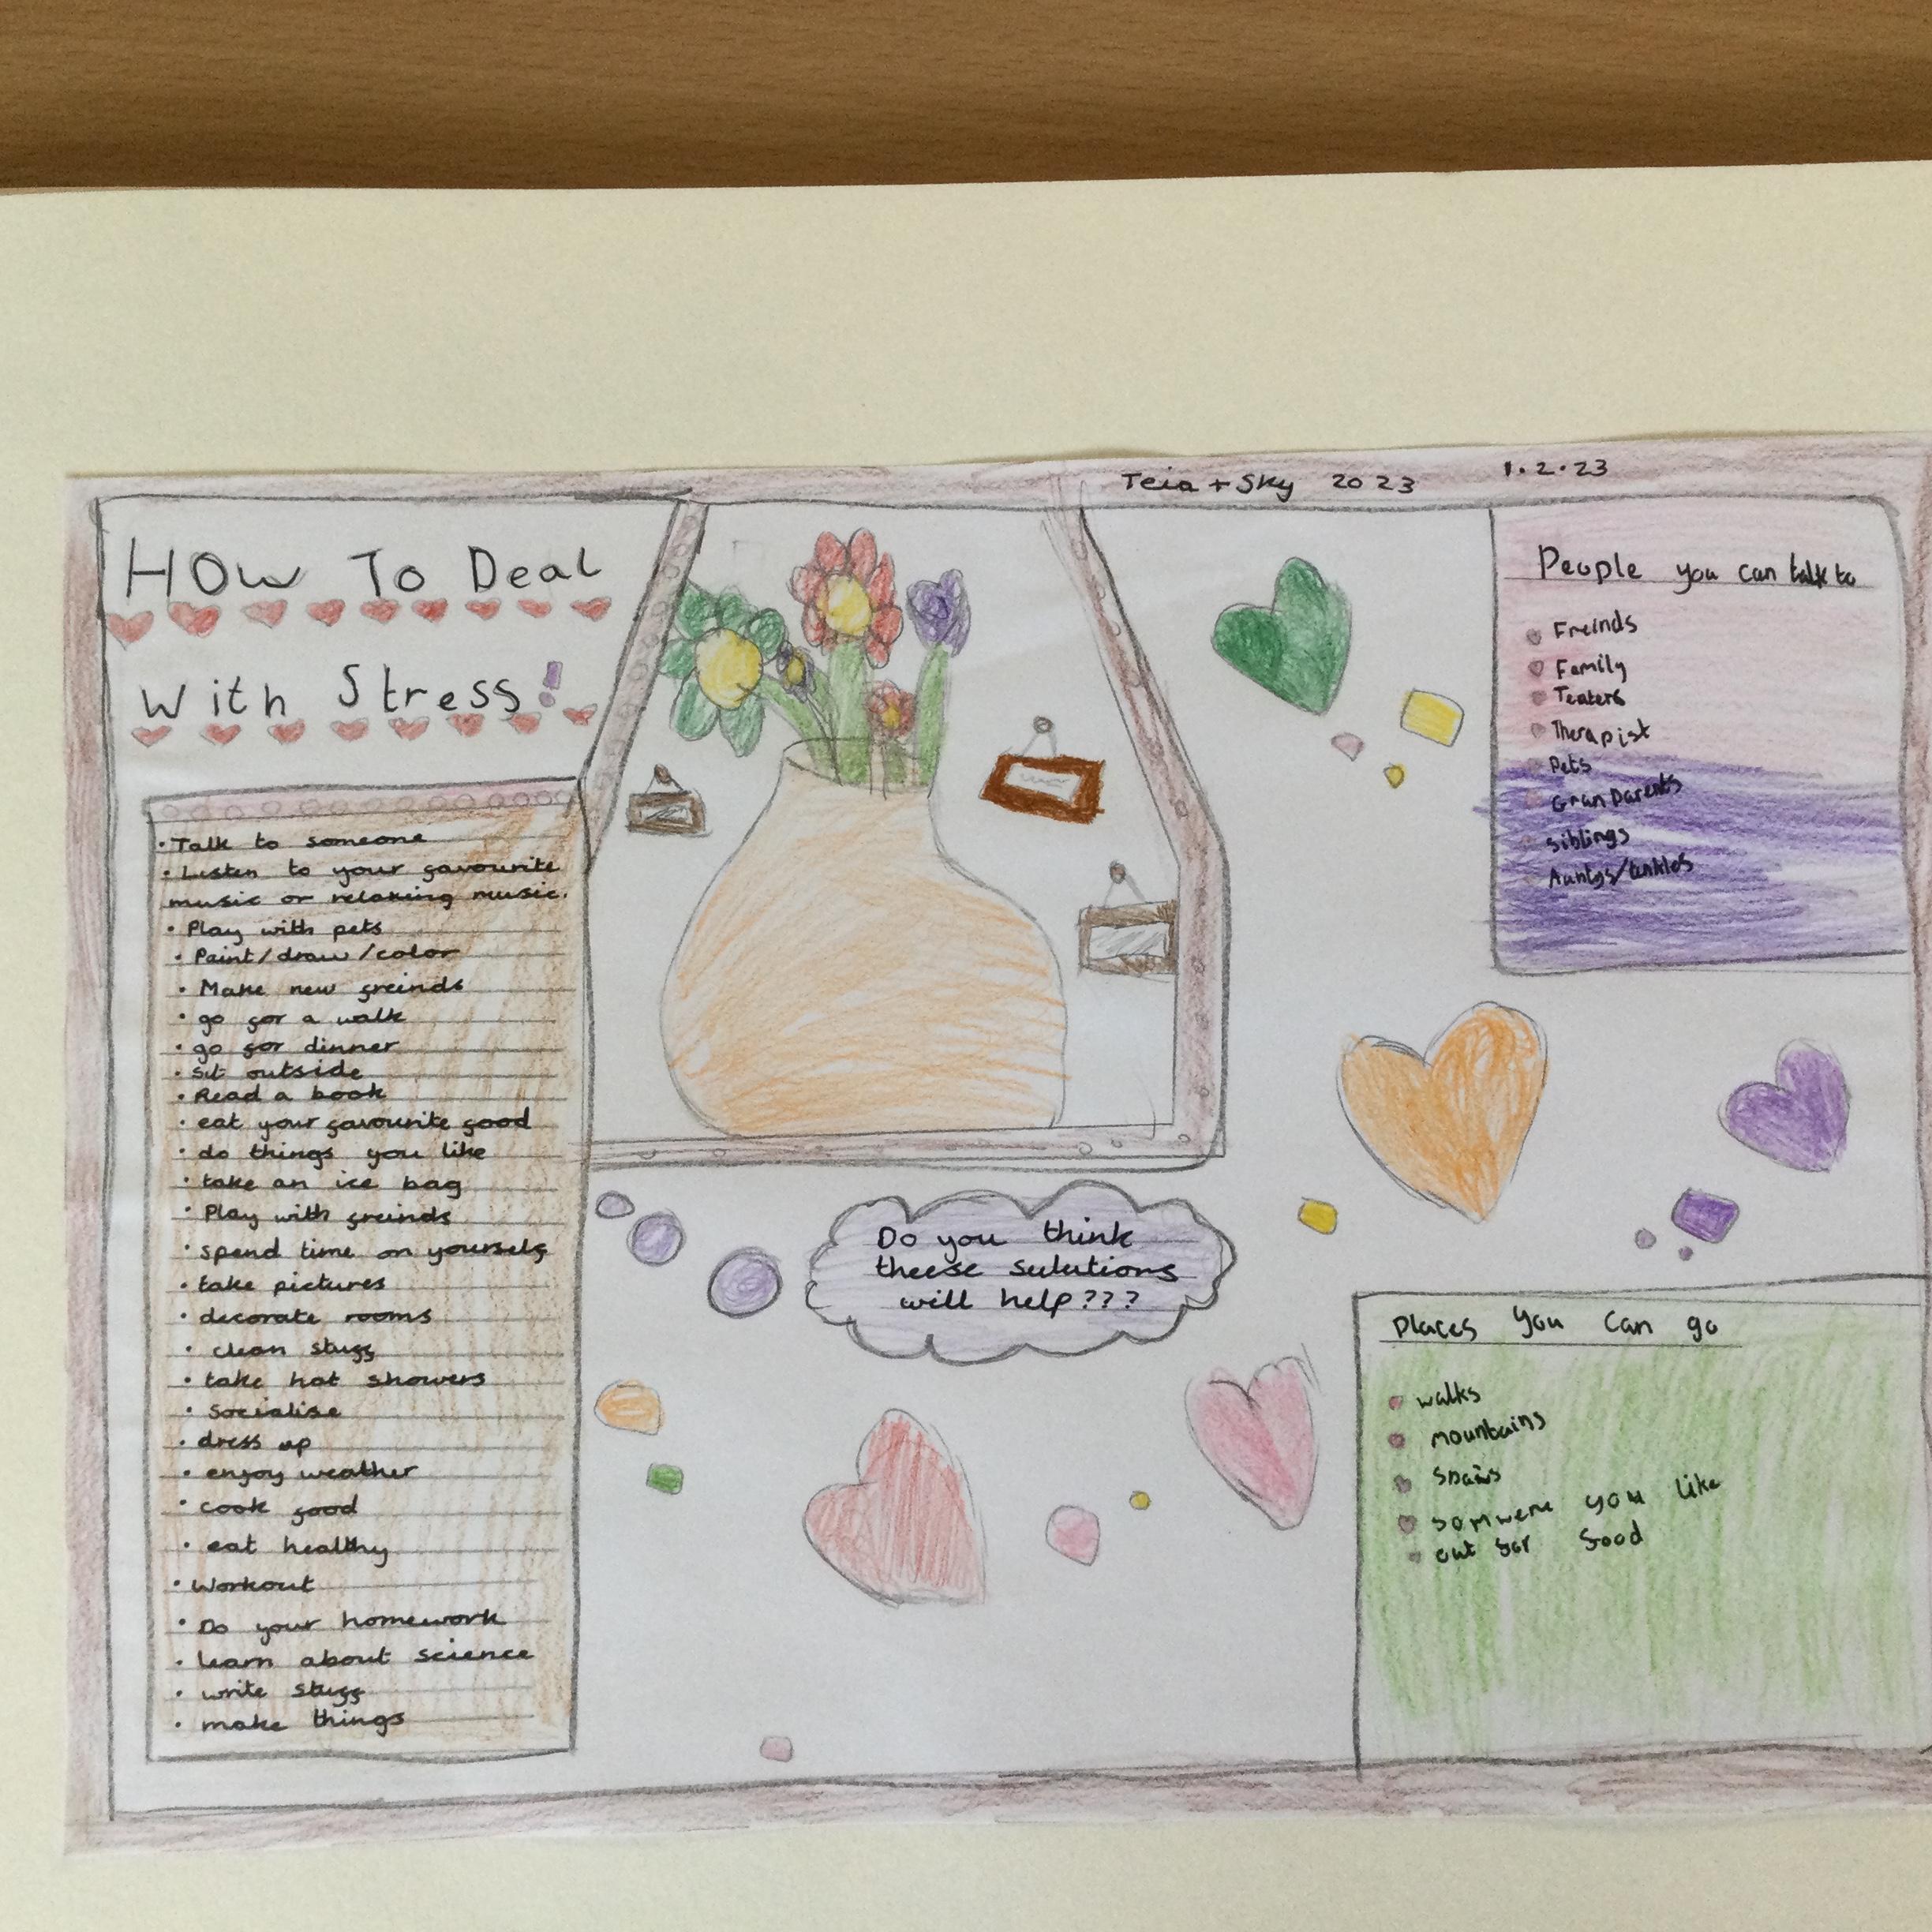 Teia + Sky 2023 1.2.23
How To Deal
With Stress!
• Talk to someone
• Listen to your favourite
music or relaxing music.
• Play with pets
• Paint/draw/color
• Make new freinds
• go for a walk
• go for dinner
• sit outside
• Read a book
• eat your favourite food
• do things you like
• take an ice bag
• Play with freinds
• spend time on yourself
• take pictures
• decorate rooms
• clean stuff
• take hot showers
• Socialise
• dress up
• enjoy weather
• cook food
• eat healthy
• Workout
• Do your homework
• learn about science
• write stuff
• make things
Do you think
theese sulutions
will help???
People you can talk to
Freinds
Family
Teaters
Therapist
Pets
GranParents
Siblings
Auntys/unkles
Places you can go
walks
mountains
Spais
somwere you like
out for food